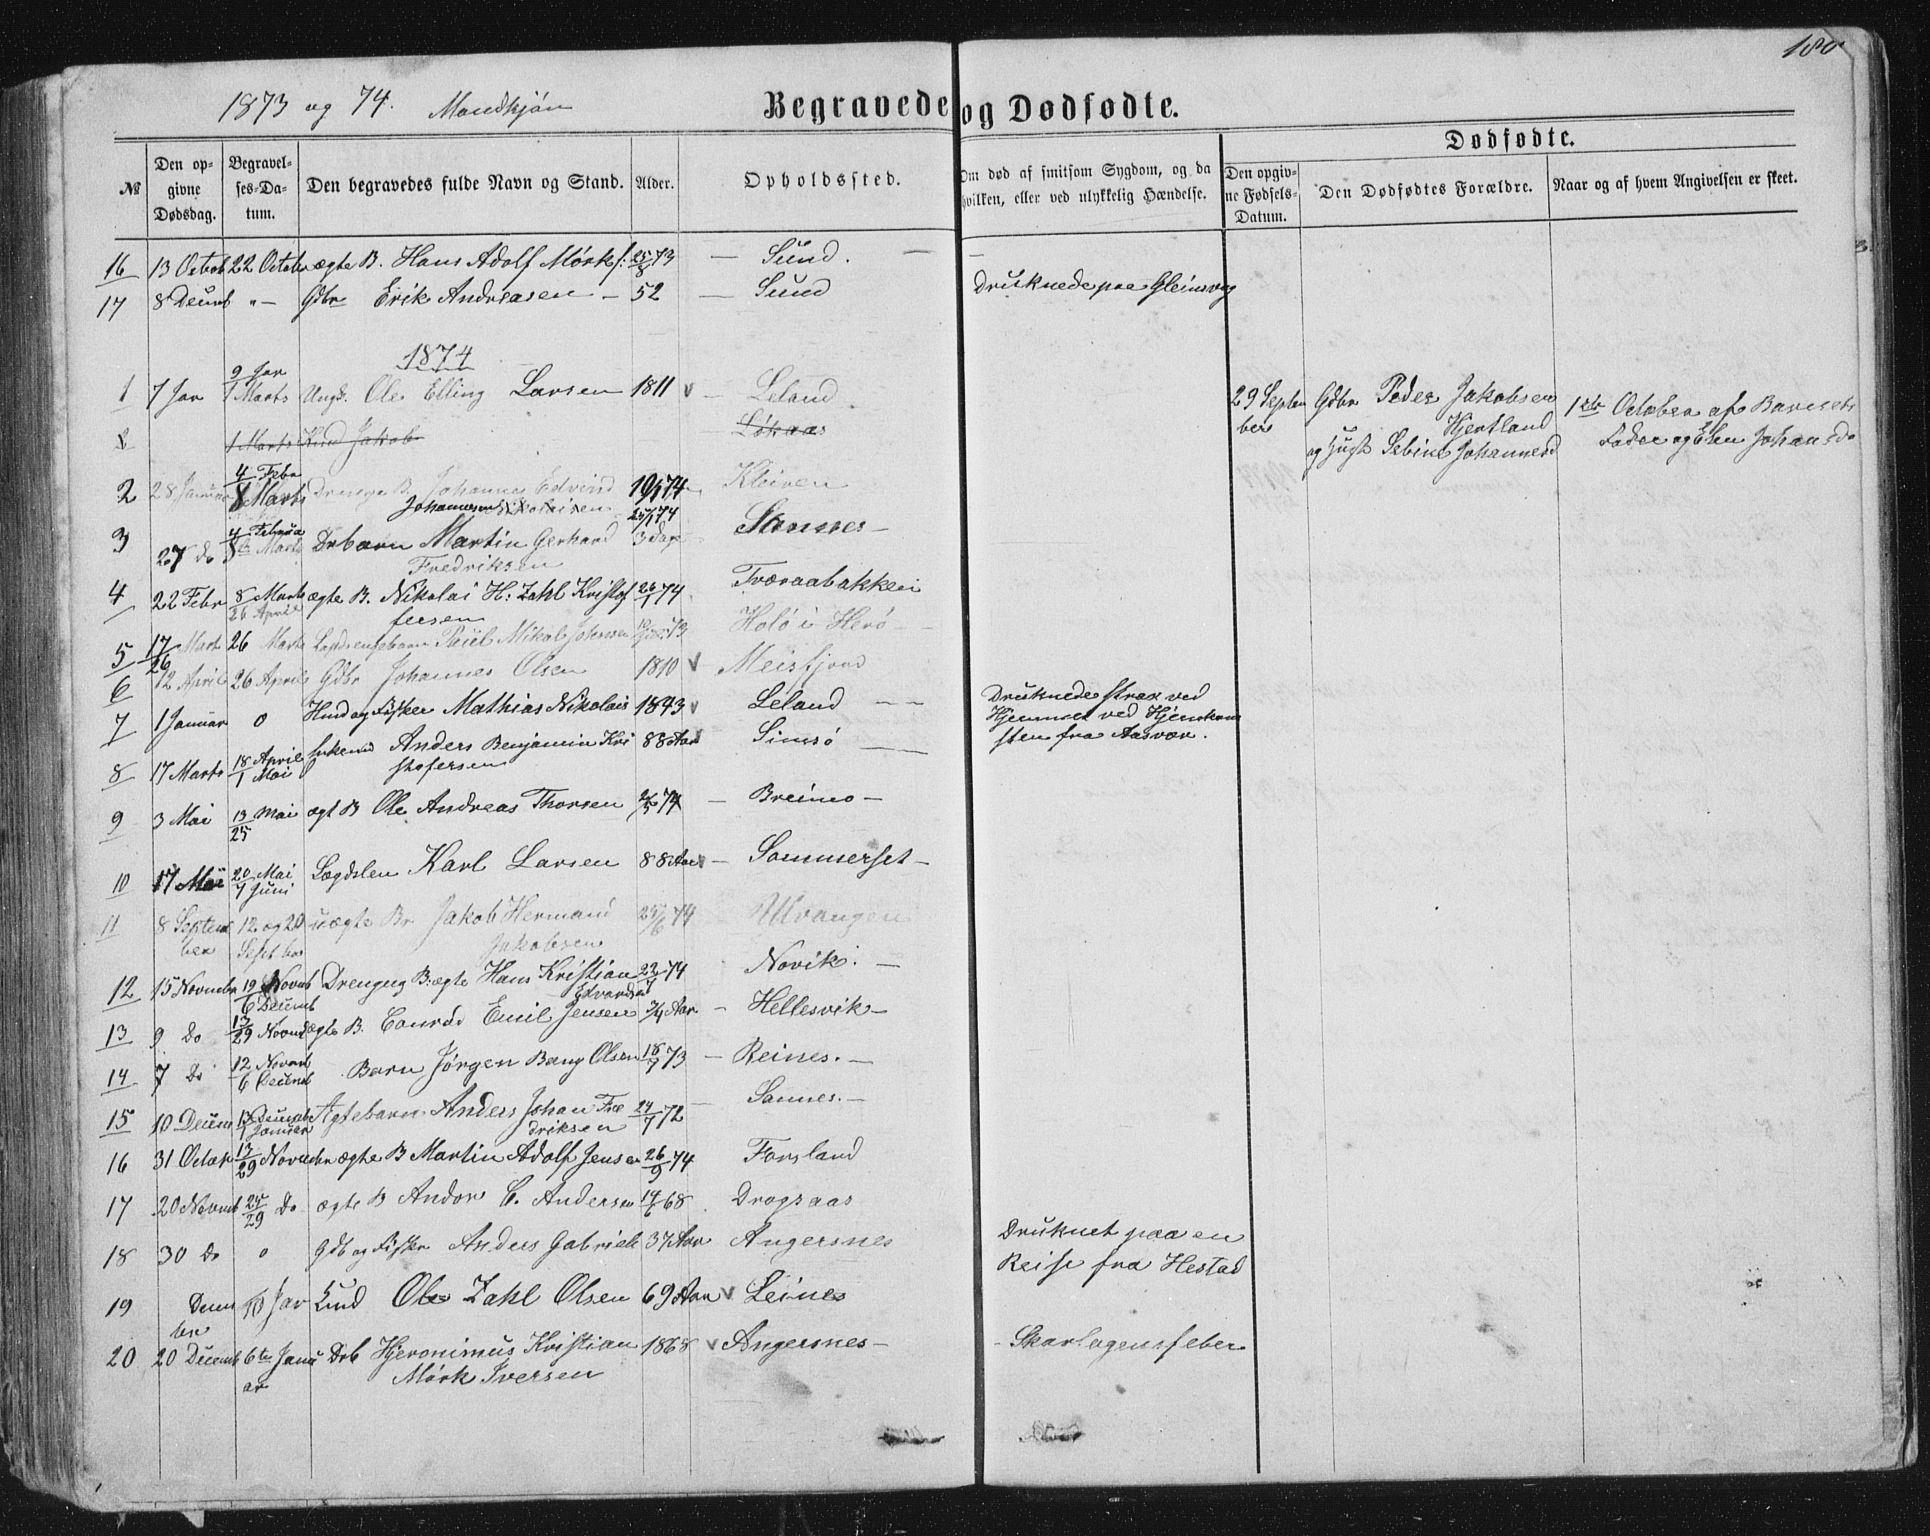 180
1873 og 74. Mandkjøn
Begravede og Dødfødte.
Dødfødte.
№ Den opgivne Dødsdag. Begravelses-Datum. Den begravedes fulde Navn og Stand. Alder. Opholdssted. Om død af smitsom Sygdom, og da hvilken, eller ved ulykkelig Hændelse. Den opgivne Fødsels-Datum. Den Dødfødtes Forældre. Naar og af hvem Angivelsen er skeet.
16 13 Octob 22 Octob ægte B. Hans Adolf Mørk 25/8 73 — Sund. —
17 8 Decmb "— Gdbr Erik Andreasen — 52 — Sund Druknede paa Gleinsvog
1874
1 7 Jan 9 Jan 1 Marts Ungk. Ole Elling Larsen 1811 v — Leland
29 September Gdbr Peder Jakobsen Hjertland og Hust Sebine Johannesd
1ste October af Barnets Fader og Elen Johansda
2 1 Marts Kind Jakob Løkaas
2 28 Januar 4 Febr 8 Marts Drenge B Johannes Edvind 19/1 74 Kløiven
Johannesen Nikolaisen 25/1 74
3 27 Do 4 Februa 8de Marts Drbarn Martin Gerhard 3 Dage Sannes —
Fredriksen
4 22 Febr 8 Marts 26 April ægte B. Nikolai H: Zahl Kristof 26/1 74 Tværaabakken
fersen
5 17/26 Marts 26 Marts Paul Mikal Johnsen 73 Holø i Herø
6 12 April 26 April Gdbr Johannes Olsen 1810 v Meisfjord
7 1 Januar o Husm og Fisker Mathias Nikolais 1843 v Leland — —
Druknede strax ved
Hjemmet ved Hjemkom
sten fra Aasvær.
8 17 Marts 18 April 1 Mai Anders Benjamin Kri 88 Aar Simsø — —
stofersen
9 3 Mai 13/25 Mai ægt B Ole Andreas Thorsen 2/5 74 — Breimo —
10 17 Mai 20 Mai 7 Juni Lægdslen Karl Larsen 88 Aar v — Sommerset —
11 8 September 12 og 20 Septbr uægte Br Jakob Hermand 25/6 74 Ulvangen
Jakobsen
12 15 Novmbr 19 Novmb 6 Decmb Drengeg B: ægte Hans Kristian 22/7 74 Novik. —
Edvardsen
13 9 Do 13/29 Novmb ægte B. Conrad Emil Jensen 3/4 Aar — Hellesvik —
14 7 Do 12 Novmb 6 Decmb Barn Jørgen Bang Olsen 18/7 73 — Reines. —
15 10 Decem 13 Decmbr 1 Januar Ægtebarn Anders Johan Fre 24/7 72 — Sannes. —
driksen
16 31 Octob 13/29 Novembr ægte B Martin Adolf Jensen 26/9 74 Forsland
17 20 Novmb 25/29 Do ægte B Andor C. Andersen 14/6 68 Dragsaas
18 30 Do o Gdb og Fisker Anders Gabriels 37 Aar Angersnes
Druknet paa en
Reise fra Hestad
19 December 10 Jan Kind Ole Zahl Olsen 69 Aar v Leines
20 20 Decemb 6te Januar Drb Hjeronimus Kristian 1868 v Angersnes — — Skarlagensfeber
Mørk Iversen